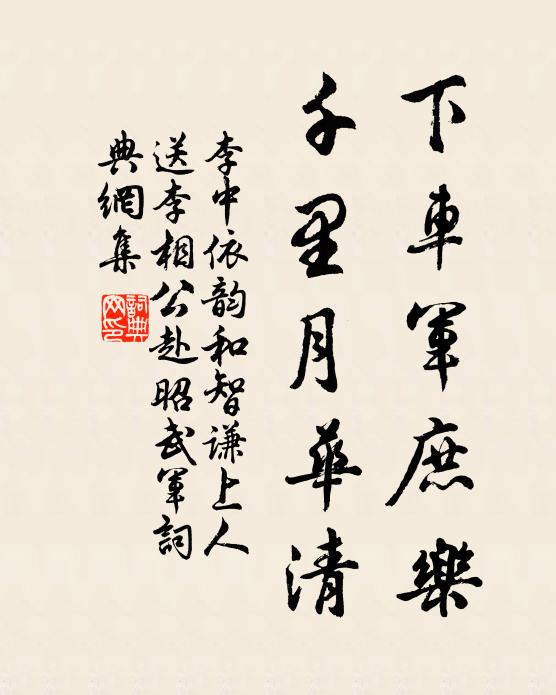 下車軍庶樂
千里月華清
李中依韵和智谦上人
送李相公赴昭武軍詞
典網集
詞典
网印